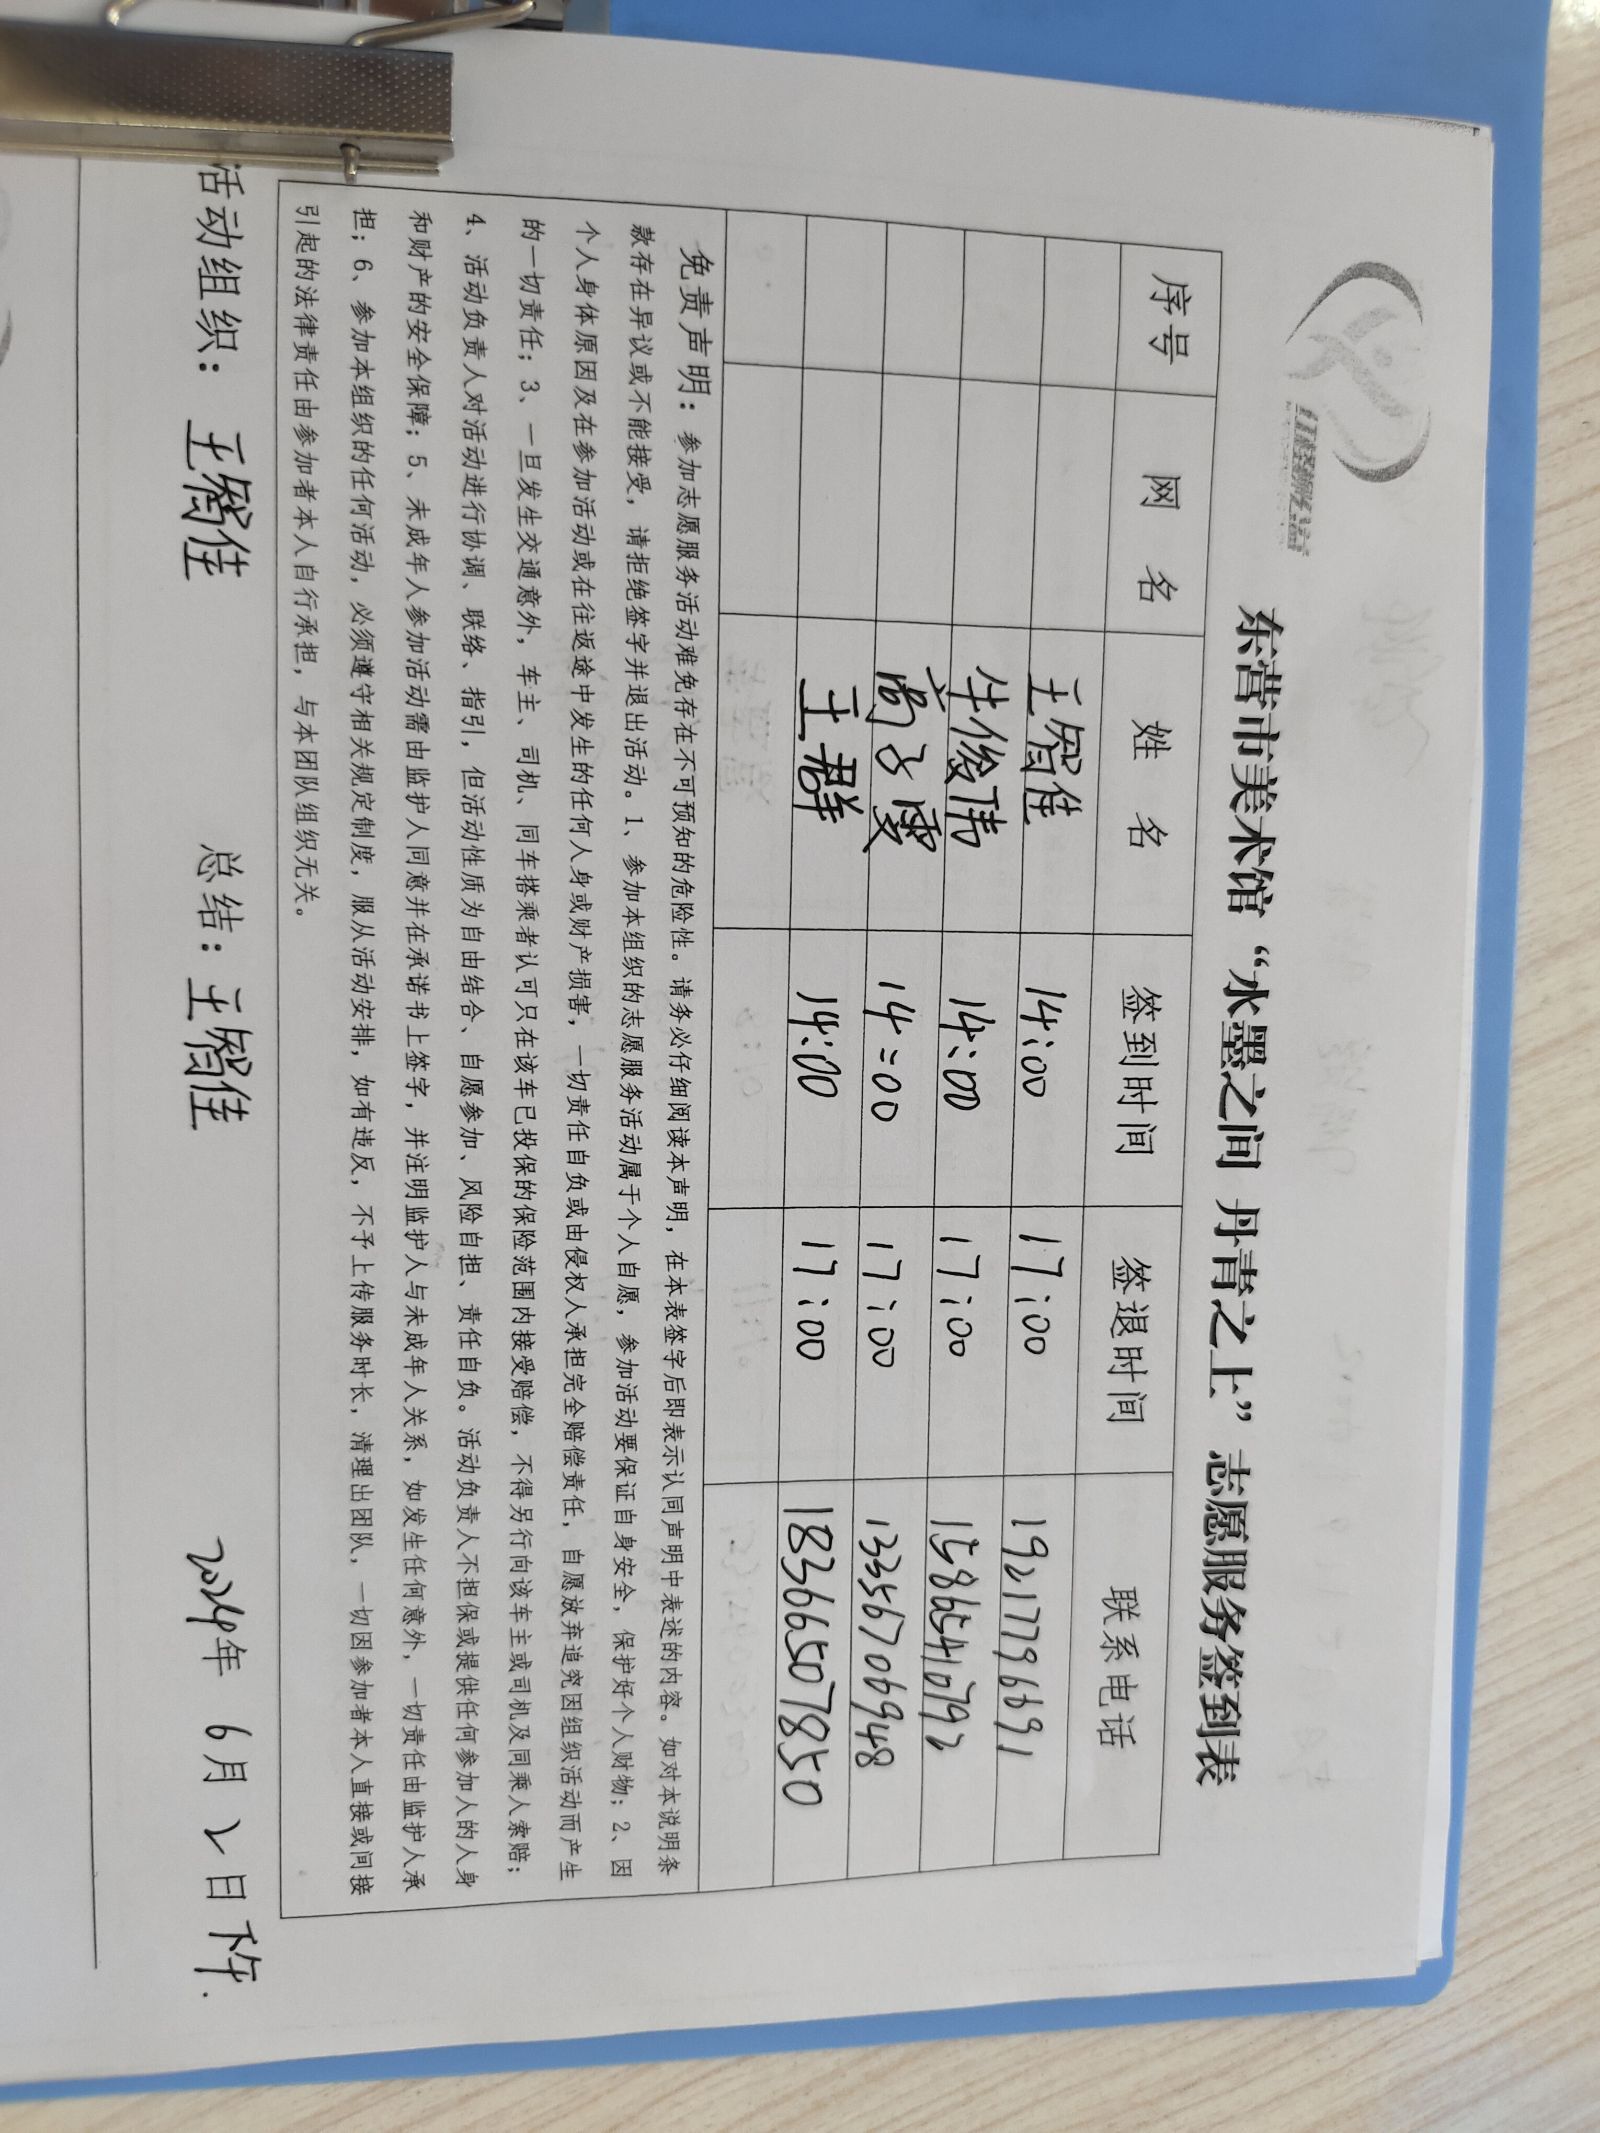 红丝带公益
东营市美术馆“水墨之间 丹青之上”志愿服务签到表
序号 网 名 姓 名 签到时间 签退时间 联系电话
王智佳 14:00 17:00 19217796691
牛俊伟 14:00 17:00 15865410792
高子雯 14:00 17:00 13356706948
王群 14:00 17:00 18366507850
免责声明：参加志愿服务活动难免存在不可预知的危险性。请务必仔细阅读本声明，在本表签字后即表示认同声明中表述的内容。如对本说明条
款存在异议或不能接受，请拒绝签字并退出活动。1、参加本组织的志愿服务活动属于个人自愿，参加活动要保证自身安全，保护好个人财物；2、因
个人身体原因及在参加活动或在往返途中发生的任何人身或财产损害，一切责任自负或由侵权人承担完全赔偿责任，自愿放弃追究因组织活动而产生
的一切责任；3、一旦发生交通意外，车主、司机、同车搭乘者认可只在该车已投保的保险范围内接受赔偿，不得另行向该车主或司机及同乘人索赔；
4、活动负责人对活动进行协调、联络、指引，但活动性质为自由结合、自愿参加、风险自担、责任自负。活动负责人不担保或提供任何参加人的人身
和财产的安全保障；5、未成年人参加活动需由监护人同意并在承诺书上签字，并注明监护人与未成年人关系，如发生任何意外，一切责任由监护人承
担；6、参加本组织的任何活动，必须遵守相关规定制度，服从活动安排，如有违反，不予上传服务时长，清理出团队，一切因参加者本人直接或间接
引起的法律责任由参加者本人自行承担，与本团队组织无关。
活动组织：王智佳 总结：王智佳 2024年 6月 2日 下午.